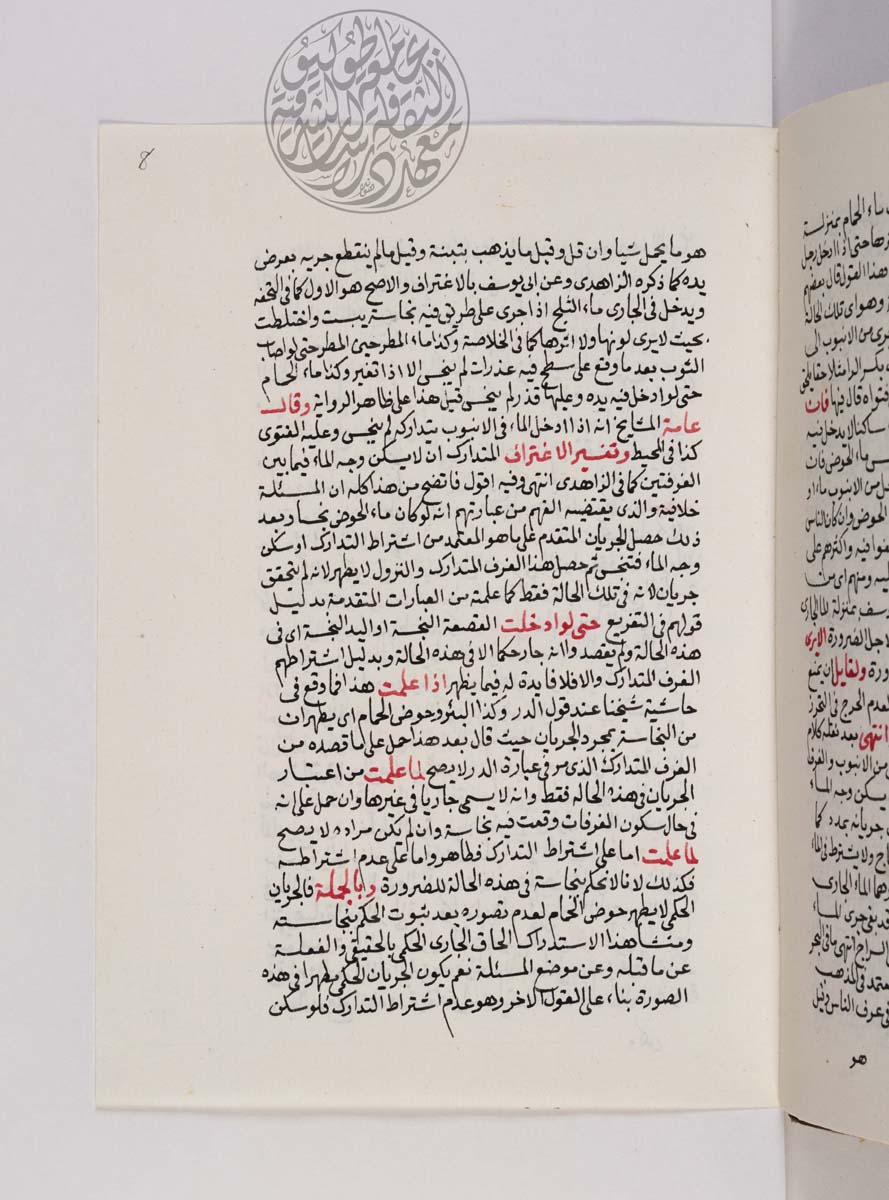 جامعة طوكيو
معهد الثقافة والدراسات الشرقية
8
هو ما يحمل شيا وان قل وقيل ما يذهب بتبنة وقيل ما لم ينقطع جريه بعرض
يده كما ذكره الزاهدى وعن ابى يوسف بالاغتراف والاصح هو الاول كما فى التحفه
ويدخل فى الجارى ماء الثلج اذ اجرى على طريق فيه نجاسة يبست واختلطت
بحيث لا يرى لونها ولا اثرها كما فى الخلاصة وكذا ماء المطر حتى لو اصاب
الثوب بعد ما وقع على سطح فيه عذرات لم ينجس الا اذا تغير وكذا ماء الحمام
حتى لو ادخل فيه يده وعليها قذر لم ينجس قيل هذا على ظاهر الرواية وقالت
عامة المشايخ انه اذا ادخل الماء فى الانبوب بتداركه لم ينجس وعليه الفتوى
كذا فى المحيط وتفسير الاغتراف المتدارك ان لا يسكن وجه الماء فيما بين
الغرفتين كما فى الزاهدى انتهى وفيه اقول فاتضح من هذا كله ان المسئلة
خلافية والذى يقتضيه الفهم من عبارتهم انه لو كان ماء الحوض نجسا وبعد
ذلك حصل الجريان المتقدم على ما هو المعتمد من اشتراط التدارك او سكن
وجه الماء فتنجس ثم حصل هذا الغرف المتدارك والنزول لا يطهر لانه لم يتحقق
جريان لانه فى تلك الحالة فقط كما علمته من العبارات المتقدمة بدليل
قولهم فى التفريع حتى لو ادخلت القصعة النجسة او اليد النجسة اى فى
هذه الحالة ولم يقصد وا انه جار حكما الا فى هذه الحالة وبدليل اشتراطهم
الغرف المتدارك والا فلا فايدة له فيما يظهر اذا علمت هذا فما وقع فى
حاشية شيخنا عند قول الدر وكذا البئر وحوض الحمام اى يطهران
من النجاسة بمجرد الجريان حيث قال بعد هذا حمل على ما قصده من
الغرف المتدارك الذى مر فى عبارة الدر لا يصح لما علمت من اعتبار
الجريان فى هذه الحالة فقط وانه لا يسمى جاريا فى غيرها وان حمل على انه
فى حال سكون الغرفات وقعت فيه نجاسة وان لم يكن مراده لا يصح
لما علمت اما على اشتراط التدارك فظاهر واما على عدم اشتراطه
فكذلك لانا لا نحكم بنجاسة فى هذه الحالة للضرورة وبالجملة فالجريان
الحكمى لا يطهر حوض الحمام لعدم تصوره بعد ثبوت الحكم بنجاسته
ومنشأ هذا الاستدراك الحاق الجارى الحكمى بالحقيقى والغفلة
عن ما قبله وعن موضع المسئلة نعم يكون الجريان الحكمى مطهرا فى هذه
الصورة بناء على القول الاخر وهو عدم اشتراط التدارك فلو سكن
هو